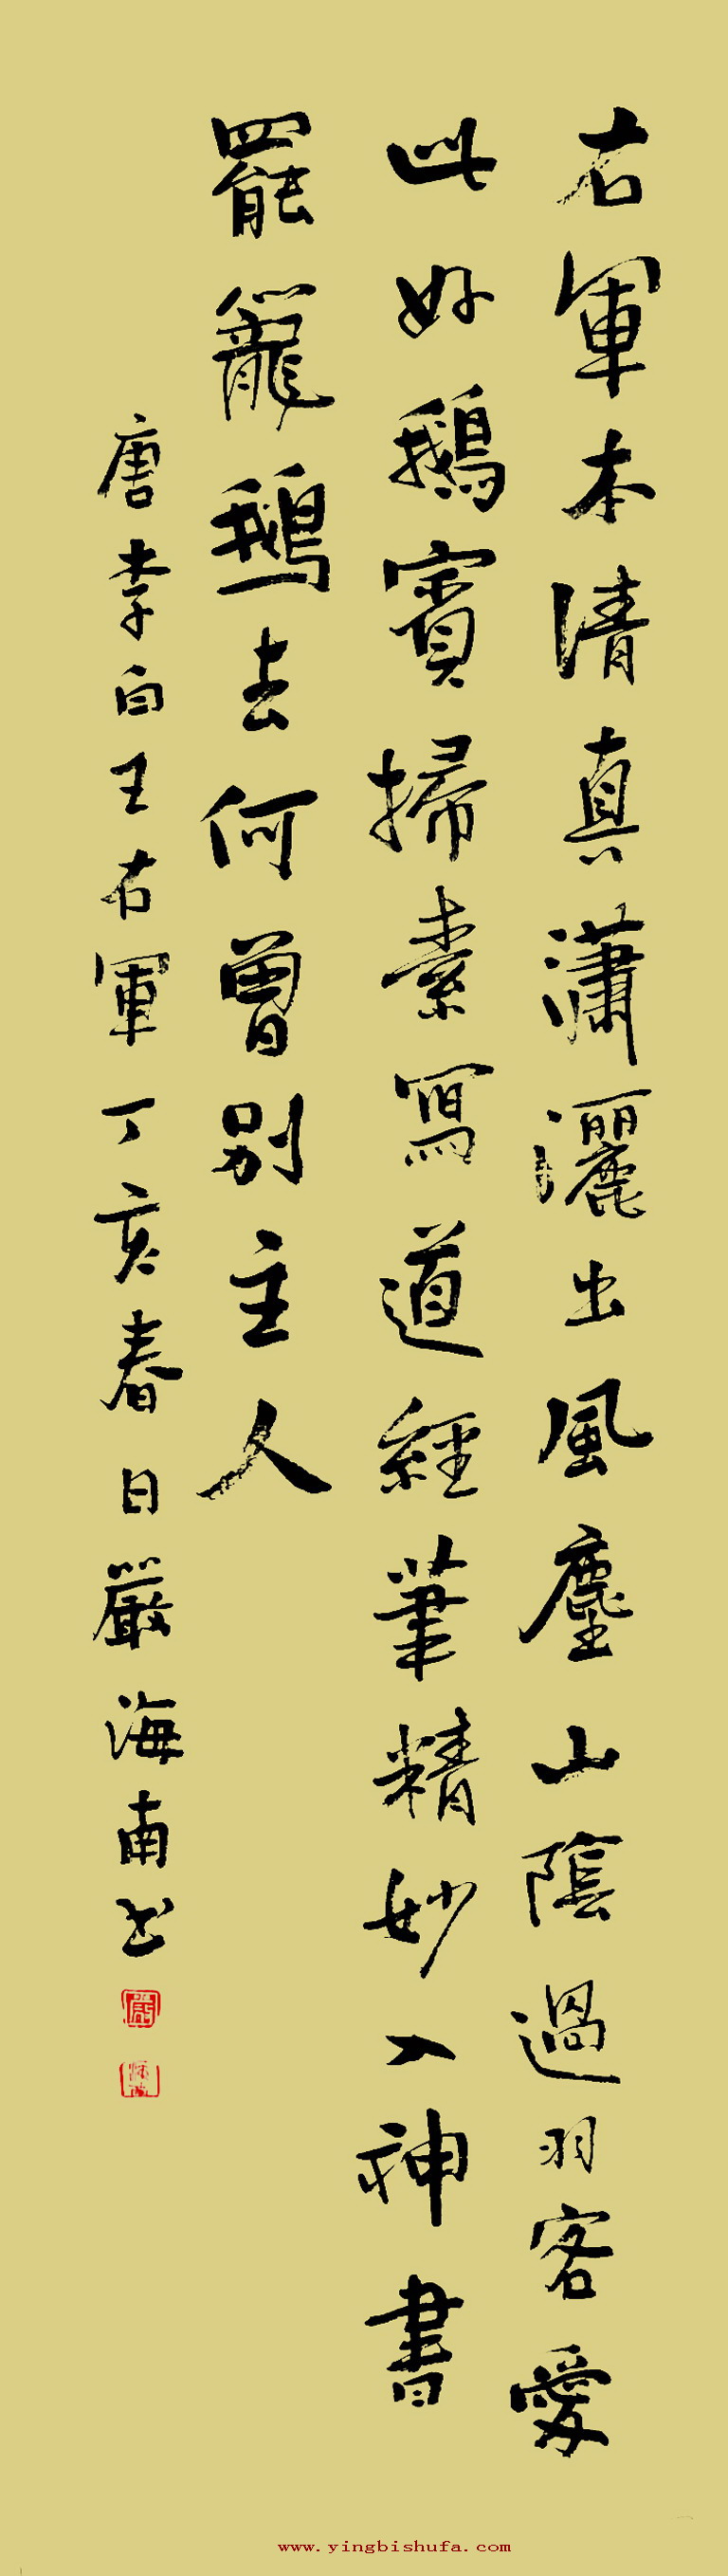 右軍本清真瀟灑出風塵山陰過羽客愛
此好鵝賓掃素寫道經筆精妙入神書
罷籠鵝去何曾別主人
唐李白王右軍丁亥春日嚴海南书
www.yingbishufa.com